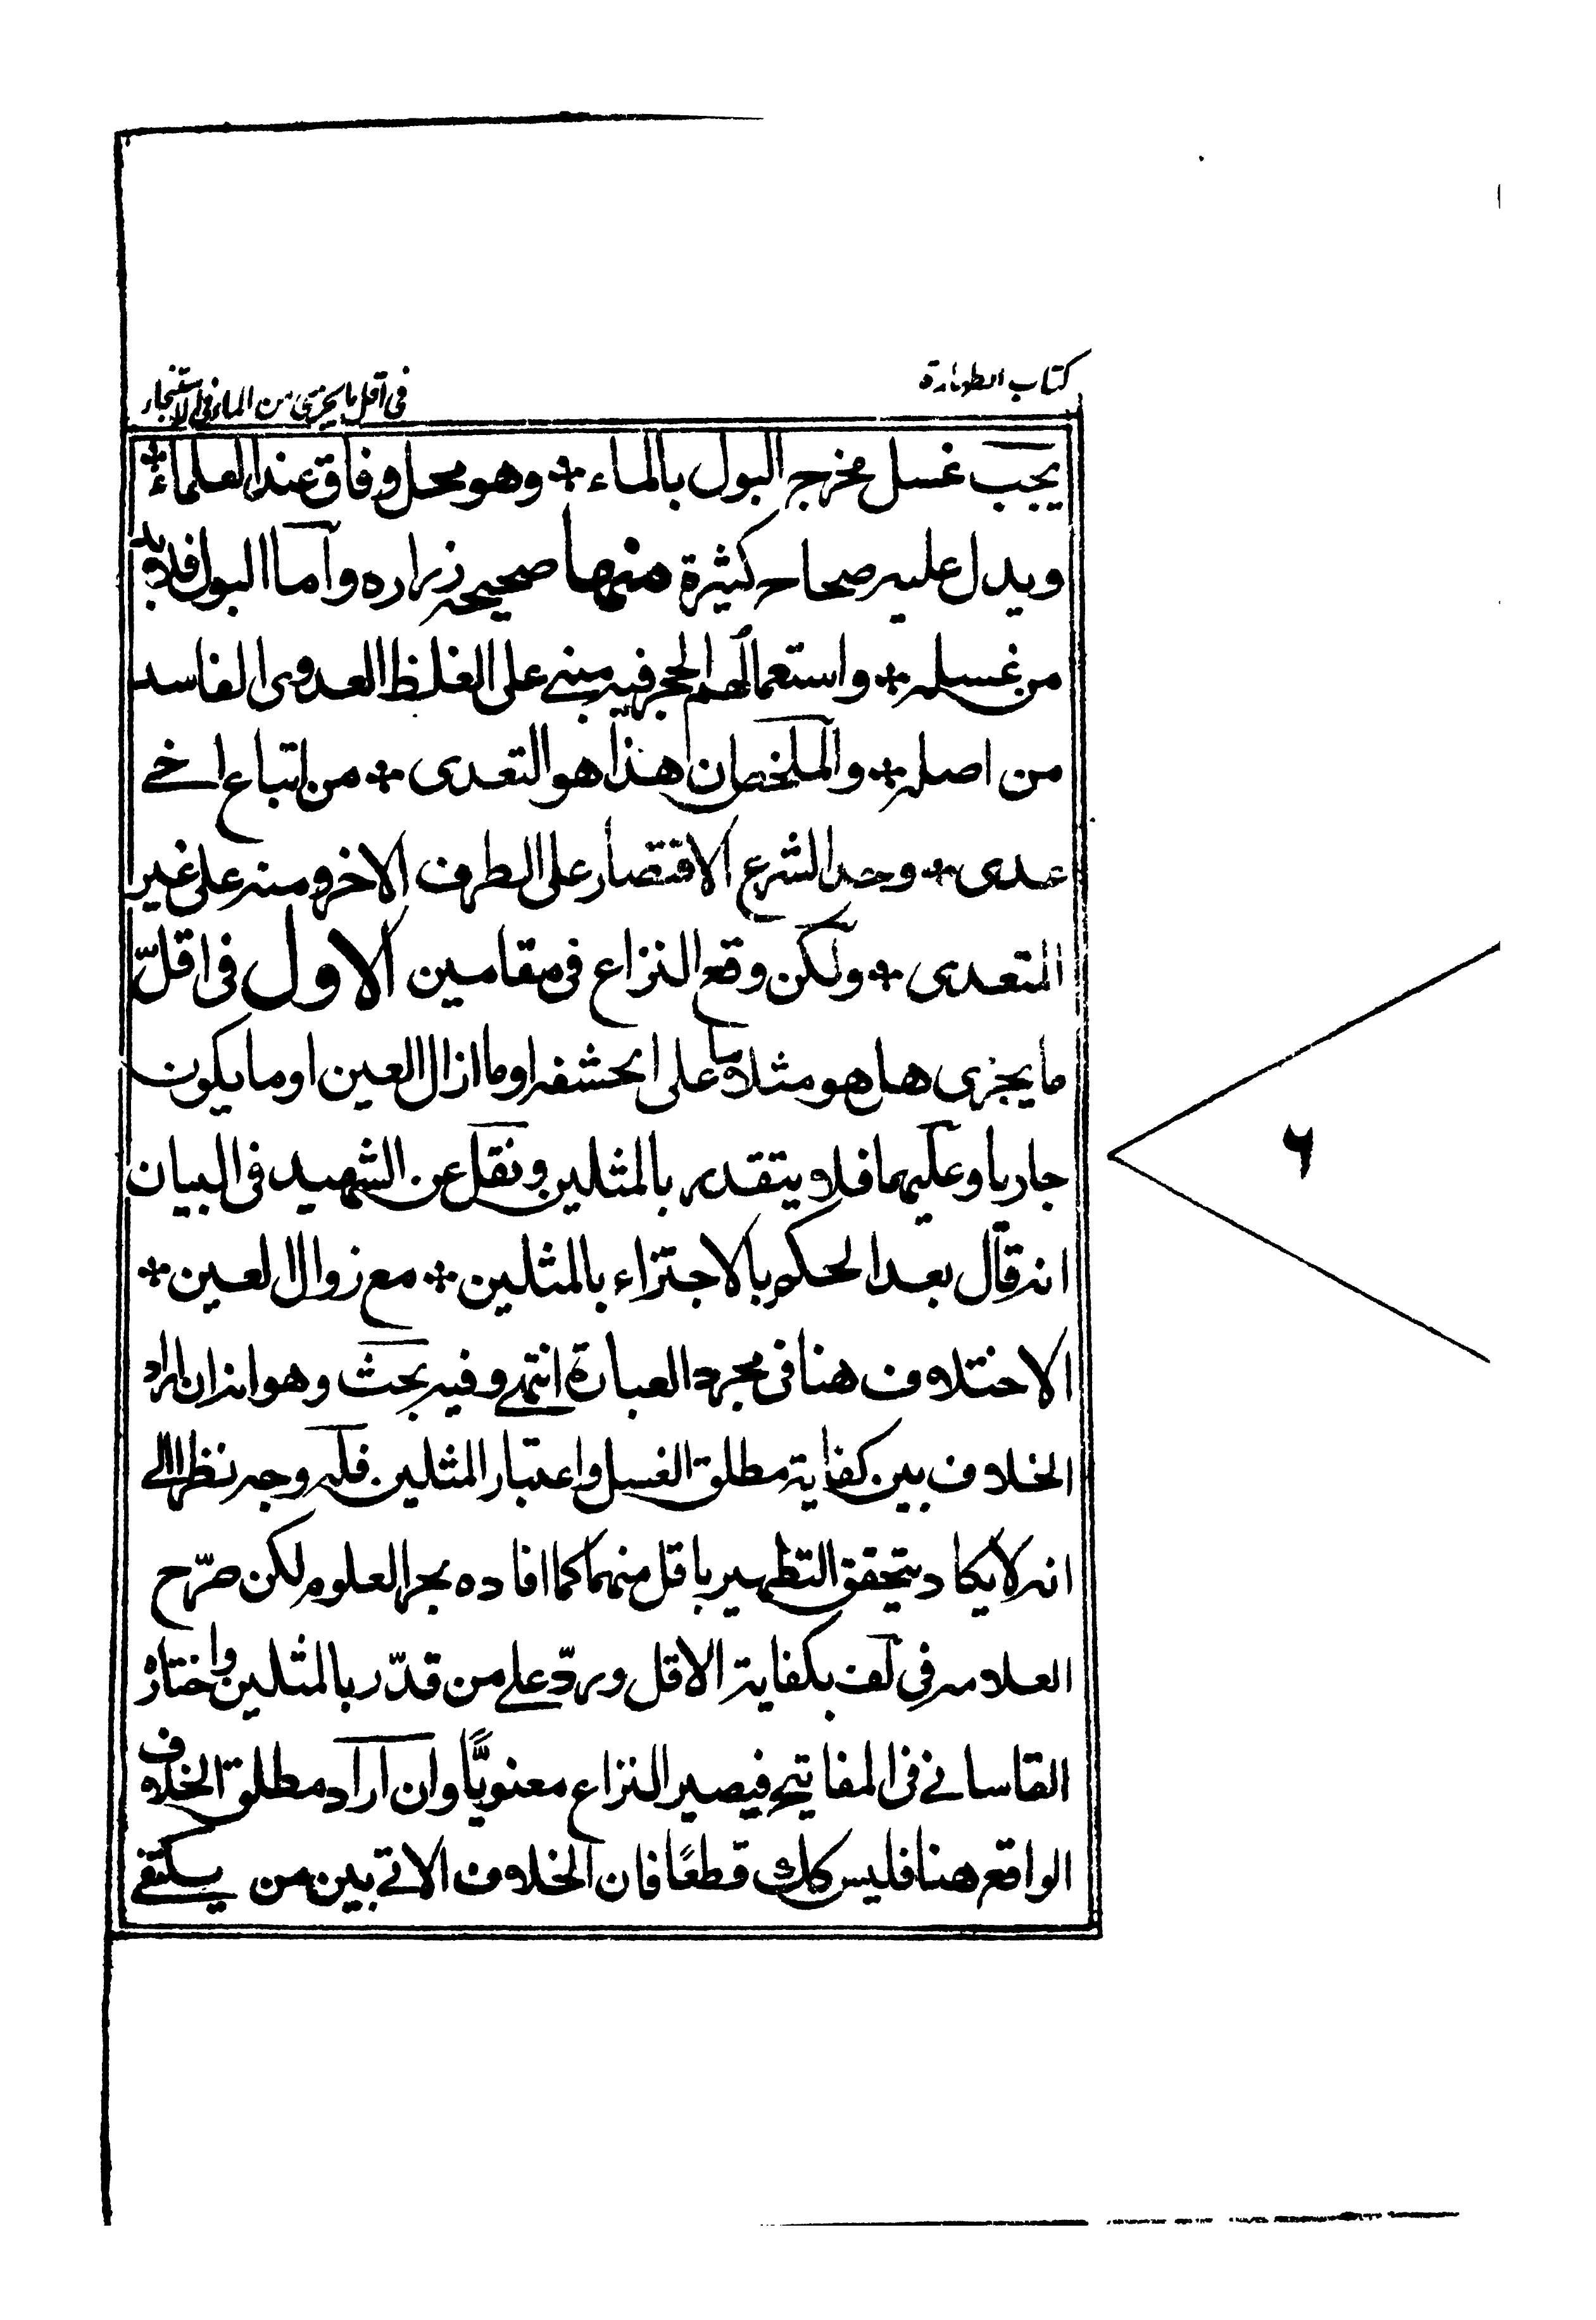 كتاب الطهارة
في اقل ما يجزي من الماء في الاستنجاء
يجب غسل مخرج البول بالماء * وهو محل وفاق عند العلماء *
ويدل عليه صحاح كثيرة منها صحيحه زراره واما البول فلا بد
من غسله * واستعمالهم الحجر فيه مبني على الغلظ العدوي الفاسد
من اصله * والملخص ان هذا هو التعدي * من اتباع اخي
عدي * وحد الشرع الاقتصار على الطرف الاخر ومنه على غير
المتعدي * ولكن وقع النزاع في مقامين الاول في اقلّ
ما يجزي هل هو مثلا ما على الحشفه او ما ازال العين او ما يكون
جاريا وعليهما فلا يتقدر بالمثلين ونقل عن الشهيد في البيان
انه قال بعد الحكم بالاجتزاء بالمثلين * مع زوال العين *
الاختلاف هنا في مجرد العبارة انتهى وفيه بحث وهو انه ان اراد
الخلاف بين كفاية مطلق الغسل واعتبار المثلين فله وجه نظرا الى
انه لا يكاد يتحقق التطهير باقل منهما كما افاده بحر العلوم لكن صرّح
العلامه في لف بكفاية الاقل وردّ على من قدّر بالمثلين واختاره
القاساني في المفاتيح فيصير النزاع معنويًّا وان اراد مطلق الخلاف
الواقع هنا فليس كك قطعًا فان الخلاف الاتي بين من يكتفي
٦